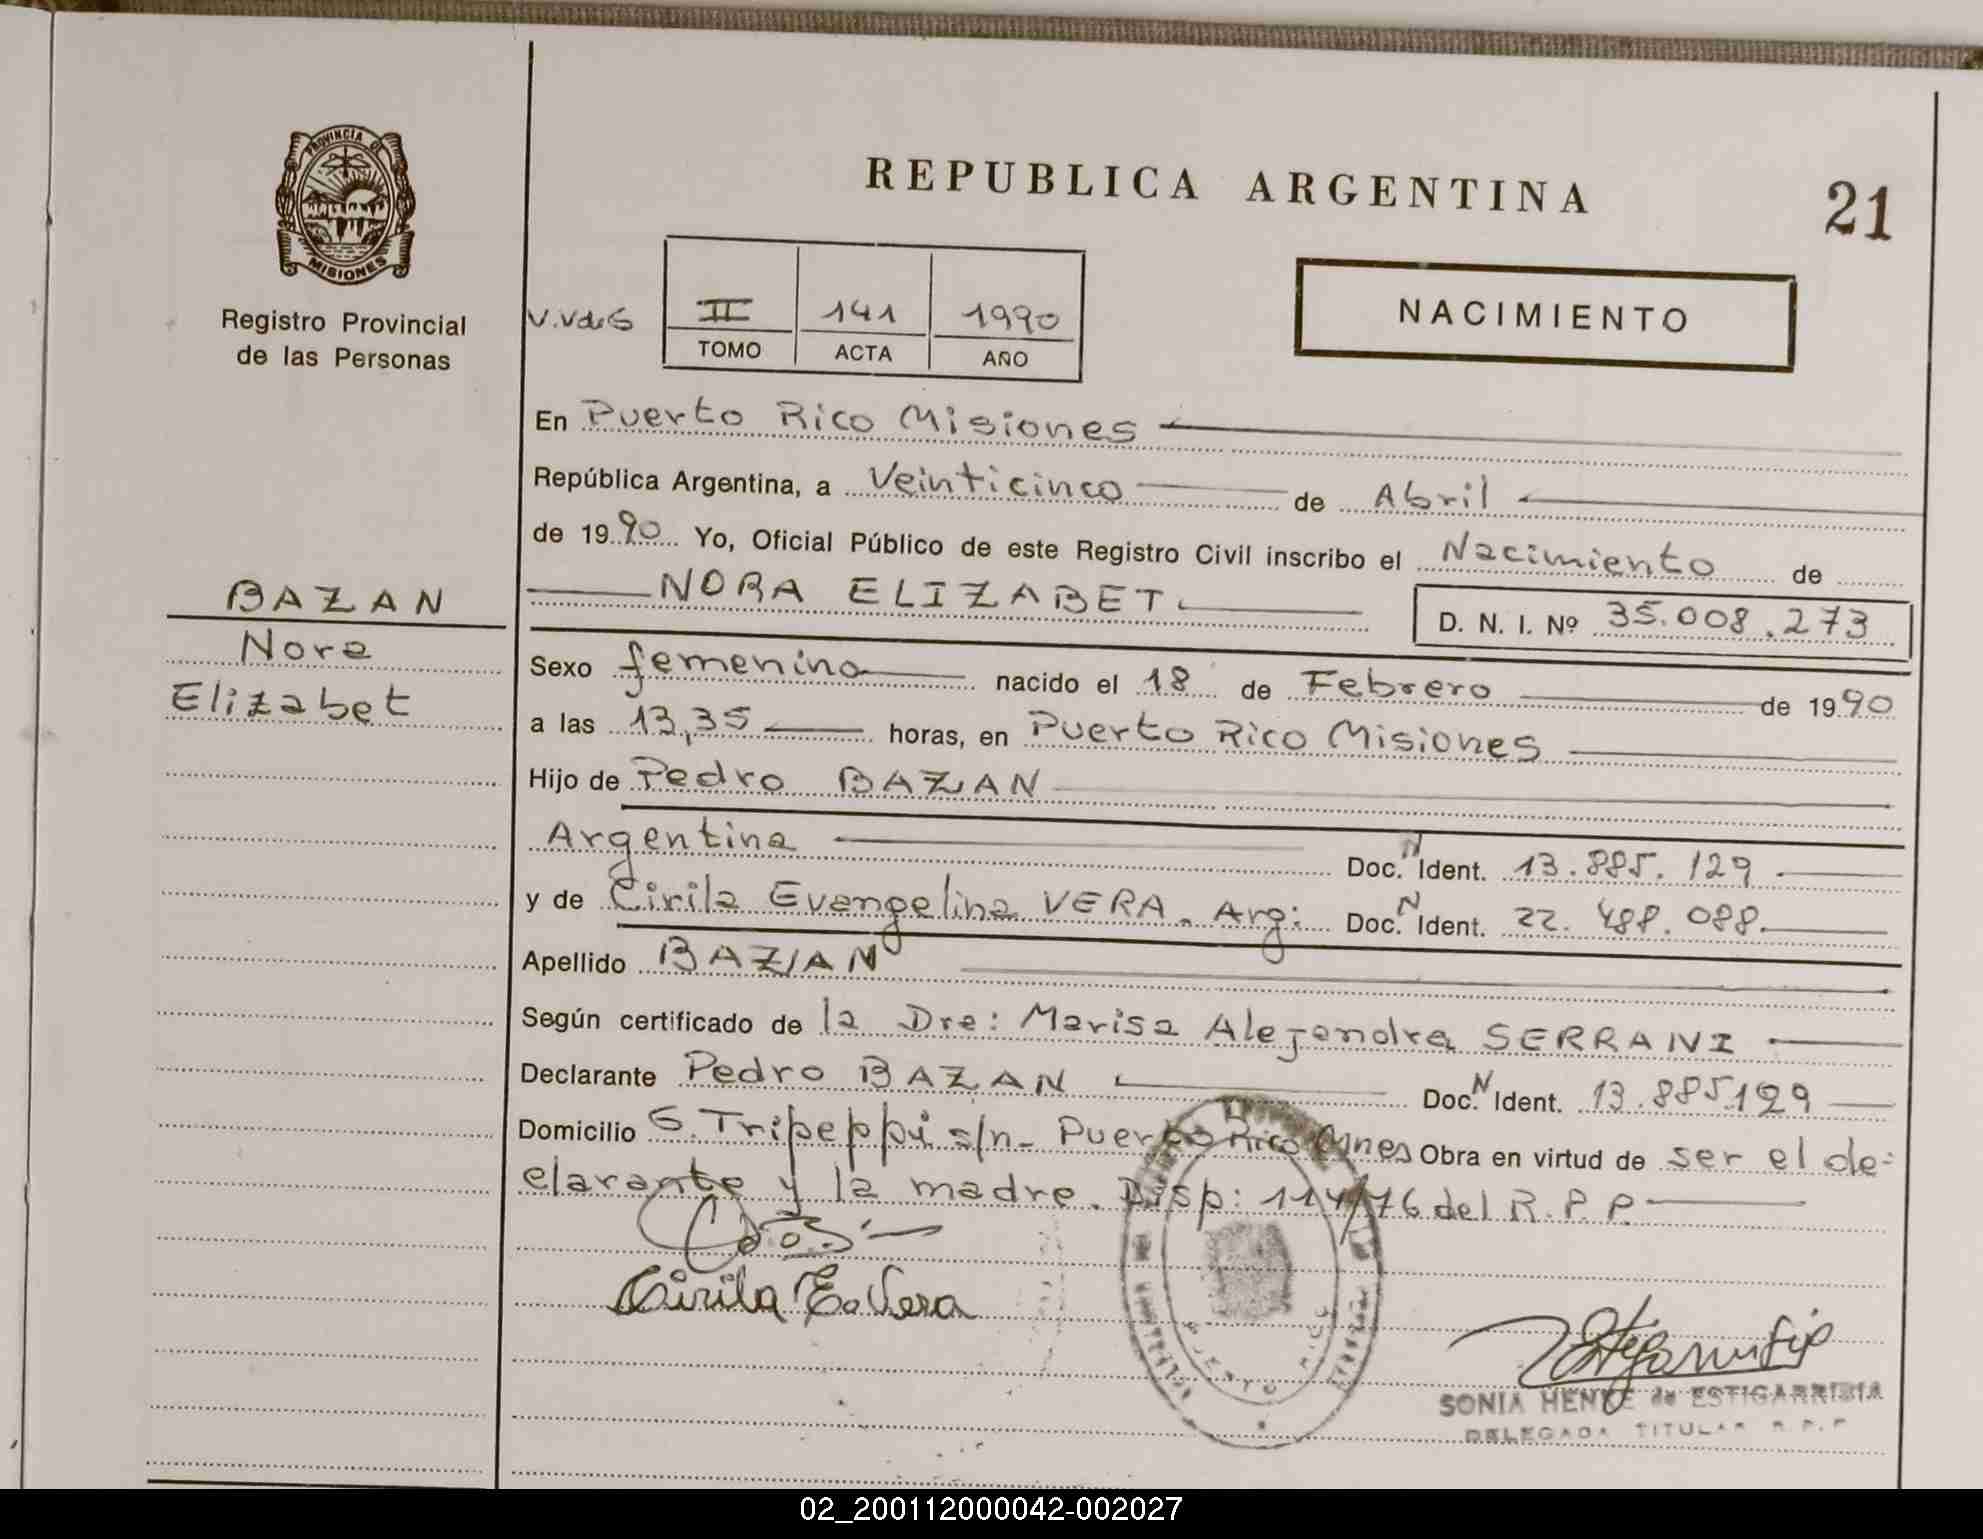 PROVINCIA DE
MISIONES
Registro Provincial
de las Personas
BAZAN
Nora
Elizabet
REPUBLICA ARGENTINA
21
V.VdeS
II 141 1990
TOMO ACTA AÑO
NACIMIENTO
En Puerto Rico Misiones
República Argentina, a Veinticinco de Abril
de 1990 Yo, Oficial Público de este Registro Civil inscribo el Nacimiento de
NORA ELIZABET D. N. I. Nº 35.008.273
Sexo femenino nacido el 18 de Febrero de 1990
a las 13,35 horas, en Puerto Rico Misiones
Hijo de Pedro BAZAN
Argentina Doc. N Ident. 13.885.129
y de Cirila Evangelina VERA. Arg: Doc. N Ident. 22.488.088.
Apellido BAZAN
Según certificado de la Dra: Marisa Alejandra SERRANI
Declarante Pedro BAZAN Doc. N Ident. 13.885.129
Domicilio S. Tripeppi s/n- Puerto Rico Mnes Obra en virtud de ser el de-
clarante y la madre. Disp: 114/76 del R.P.P.
Cirila E. Vera
PUERTO RICO
SONIA HENKE de ESTIGARRIBIA
DELEGADA TITULAR R.P.P
02_200112000042-002027